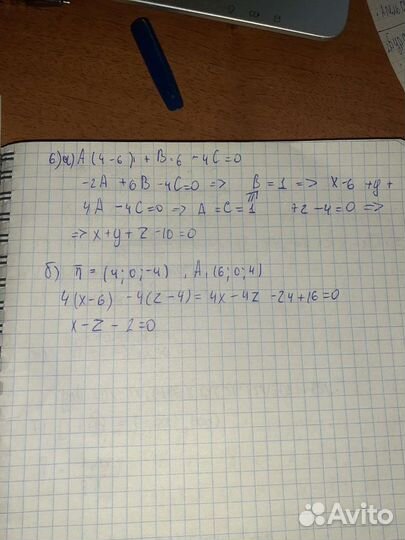 6) а) A(4-6) + B·6 -4C=0
-2A +6B -4C=0 => B=1 => x-6 +y+
4A -4C=0 => A=C=1 +z-4=0 =>
=> x+y+z-10=0
б) n = (4;0;-4), A, (6;0;4)
4(x-6) -4(z-4)=4x-4z -24+16=0
x-z-2=0
Avito